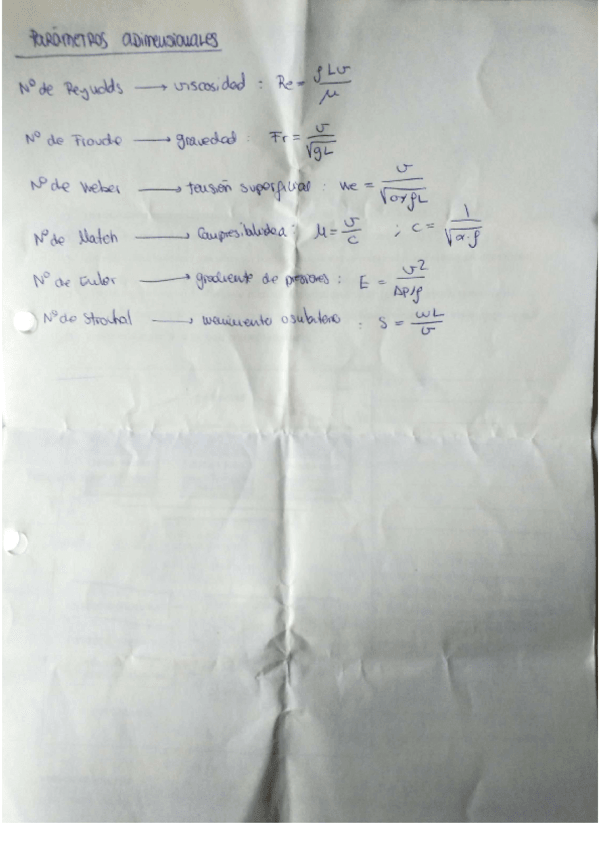 PARÁMETROS ADIMENSIONALES
Nº de Reynolds → viscosidad : Re = ρLv/μ
Nº de Froude → gravedad : Fr = v/√gL
Nº de Weber → tensión superficial : We = v/√σ/ρL
Nº de Match → Compresibilidad : M = v/c ; c = 1/√α·ρ
Nº de Euler → gradiente de presiones : E = v²/Δp/ρ
Nº de Strouhal → movimiento : S = ωL/v